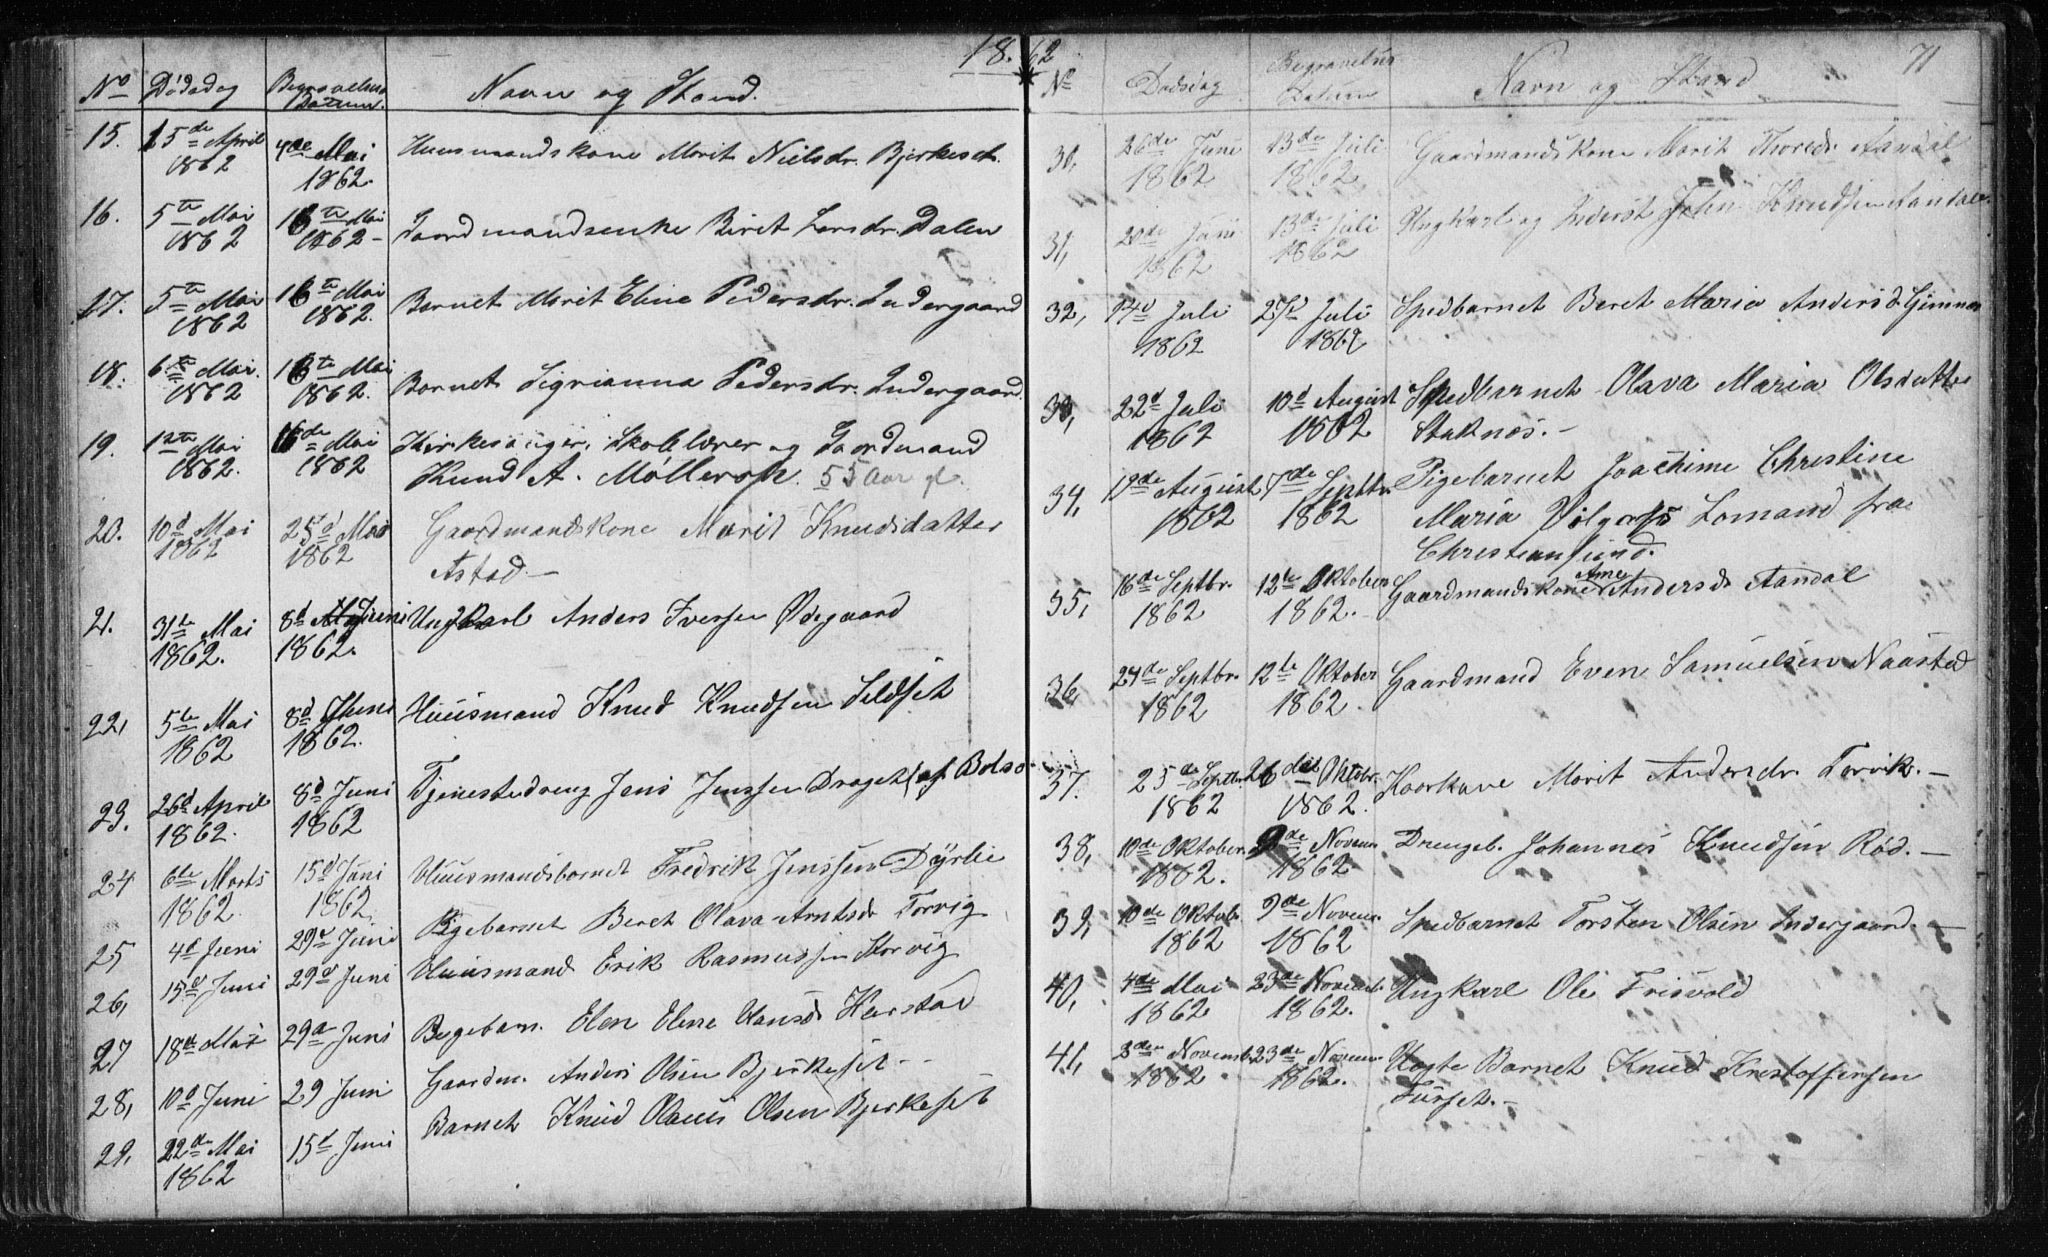 18.62
No Dödsdag Begravelses Datum. Navn og Stand.
15. 15de April 1862 4de Mai 1862. Huusmandskone Marit Nielsdr. Bjerkeset.
16. 5te Mai 1862 16te Mai 1862 - Gaardmandsenke Beret Larsdr. Dalen
17. 5te Mai 1862 16te Mai 1862. Barnet Marit Eline Pedersdr. Indergaard
18. 6te Mai. 1862 16te Mai 1862. Barnet Sigrianna Pedersdr. Indergaard.
19. 12te Mai 1862. 16de Mai 1862 Kirkesanger, Skolelærer og Gaardmand
Knud A. Möllerop. 55 Aar gl.
20. 10d Mai 1862 25d Mai 1862 Gaardmandskone Marit Knudsdatter
Astad. -
21. 31te Mai 1862. 8d Juni 1862. Ungkarl Anders Iversen Ödegaard
22, 5te Mai 1862 8d Juni 1862. Huusmand Knud Knudsen Seldset
23. 26d April 1862. 8d Juni 1862 Tjenestedreng Jens Jensen Draget (af Bolsø
24 6te Marts 1862. 15d Juni 1862, Huusmandsbarnet Fredrik Jenssen Dÿrlie
25 4d Juni 29d Juni Pigebarnet Beret Olava Arntsd Torvig
26, 15d Juni 29d Juni Huusmand Erik Rasmussen Korvig
27 18de Mai 29de Juni Pigebarn. Elen Elene Hansd Harstad
28, 10d Juni 29 Juni Gaardm. Anders Olsen Bjerkeset - -
29, 22de Mai 1862 15d Juni Barnet Knud Olaus Olsen Bjerkeset
71
No Dødsdag Begravelses Datum Navn og Stand
30, 26de Juni 1862 13de Juli 1862, Gaardmandskone Marit Thoresd. Aandal
31, 20de Juni 1862 13de Juli 1862 Ungkarl og Inderst John Knudsen Aandal.
32, 14d Juli 1862 27d Juli 1862 Spedbarnet Beret Maria Andersd Gimnes
33, 22d Juli 1862 10d August 1862 Spedbarnet Olava Maria Olsdatter
Staknæs. -
34, 19de August 1862 7de Septbr. 1862 Pigebarnet Joachime Christine
Maria Lomand fra
Christiansund.
35, 16de Septbr. 1862 12te Oktober 1862. Gaardmandskone Ane Andersd. Aandal
36 24de Septbr. 1862 12te Oktober 1862. Gaardmand Even Samuelsen Naastad
37. 25de Septbr. 1862 26de Oktbr. 1862. Kaarkone Marit Andersdr. Torvik. -
38, 10de Oktober. 1862. 9de Novem. 1862 Drengeb. Johannes Knudsen Röd. -
39, 10de Oktob. 1862 9de Novem. 1862 Spedbarnet Torsten Olsen Indergaard. -
40, 4de Mai 1862 23de Novemb. 1862. Ungkarl Ole Frisvold
41, 2den Novemb. 1862 23de Novem. 1862. Uægte Barnet Knud Kristoffersen
Furset. -